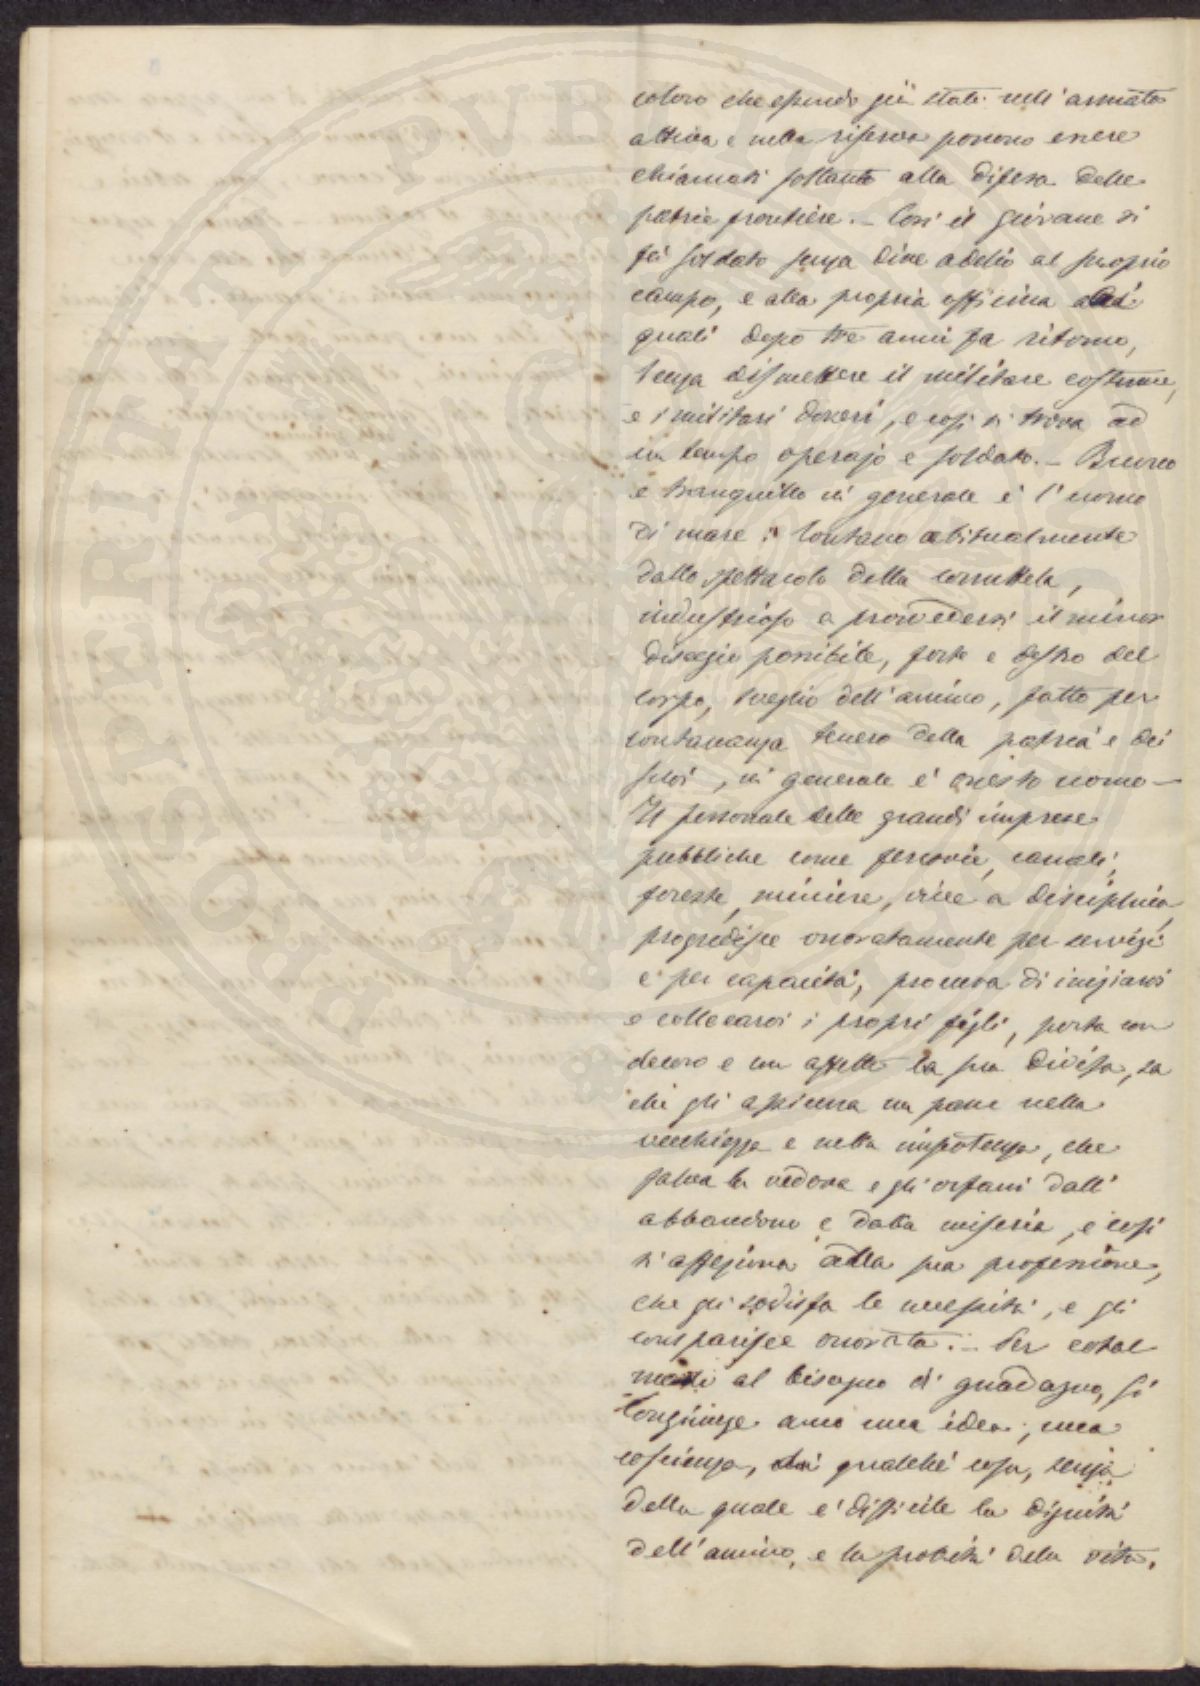 coloro che essendo già stati nell'armata
attiva e nella riserva possono essere
chiamati soltanto alla difesa delle
patrie frontiere. – Così il giovane si
fà soldato senza dire addio al proprio
campo, e alla propria officina ai
quali dopo tre anni fa ritorno,
senza dismettere il militare costume,
e i militari doveri, e così si trova ad
un tempo operajo e soldato. – Buono
e tranquillo in generale è l'uomo
di mare: lontano abitualmente
dallo spettacolo della corruttela,
industrioso a provvedersi il minor
disagio possibile, forte e destro del
corpo, sveglio dell'animo, fatto per
lontananza tenero della patria e dei
suoi, in generale è onesto uomo –
Il personale delle grandi imprese
pubbliche come ferrovie, canali,
foreste, miniere, vive a disciplina,
progredisce onoratamente per servizi
e per capacità, procura di iniziarvi
e collocarvi i propri figli, porta con
decoro e con affetto la sua divisa, sa
che gli assicura un pane nella
vecchiezza e nella impotenza, che
salva la vedova e gli orfani dall'
abbandono e dalla miseria, e così
si affeziona alla sua professione,
che gli sodisfa le necessità, e gli
comparisce onorata. – Per cotal
modo al bisogno di guadagno, si
congiunge una idea, una
coscienza, di qualche cosa, senza
della quale è difficile la dignità
dell'animo, e la probità della vita.
POSPERINAT PVBLICA